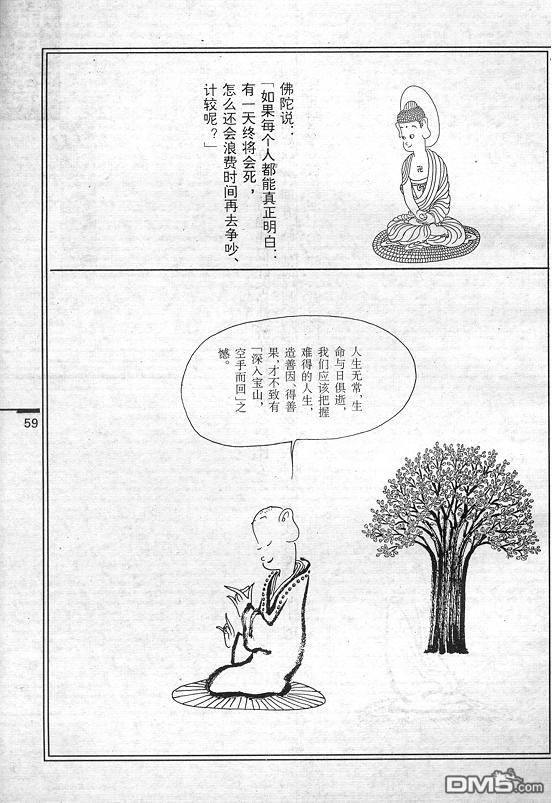 佛陀说：
「如果每个人都能真正明白：
有一天终将会死，
怎么还会浪费时间再去争吵、
计较呢？」
人生无常，生
命与日俱逝，
我们应该把握
难得的人生，
造善因、得善
果，才不致有
「深入宝山，
空手而回」之
憾。
59
DM5.com